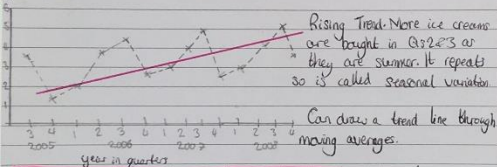 6
5
4
3
2
1
Rising Trend. More ice creams
are bought in Qs2&3 as
they are summer. It repeats
so is called seasonal variation
Can draw a trend line through
moving averages.
3 4 1 2 3 4 1 2 3 4 1 2 3 4
2005 2006 2007 2008
year in quarters